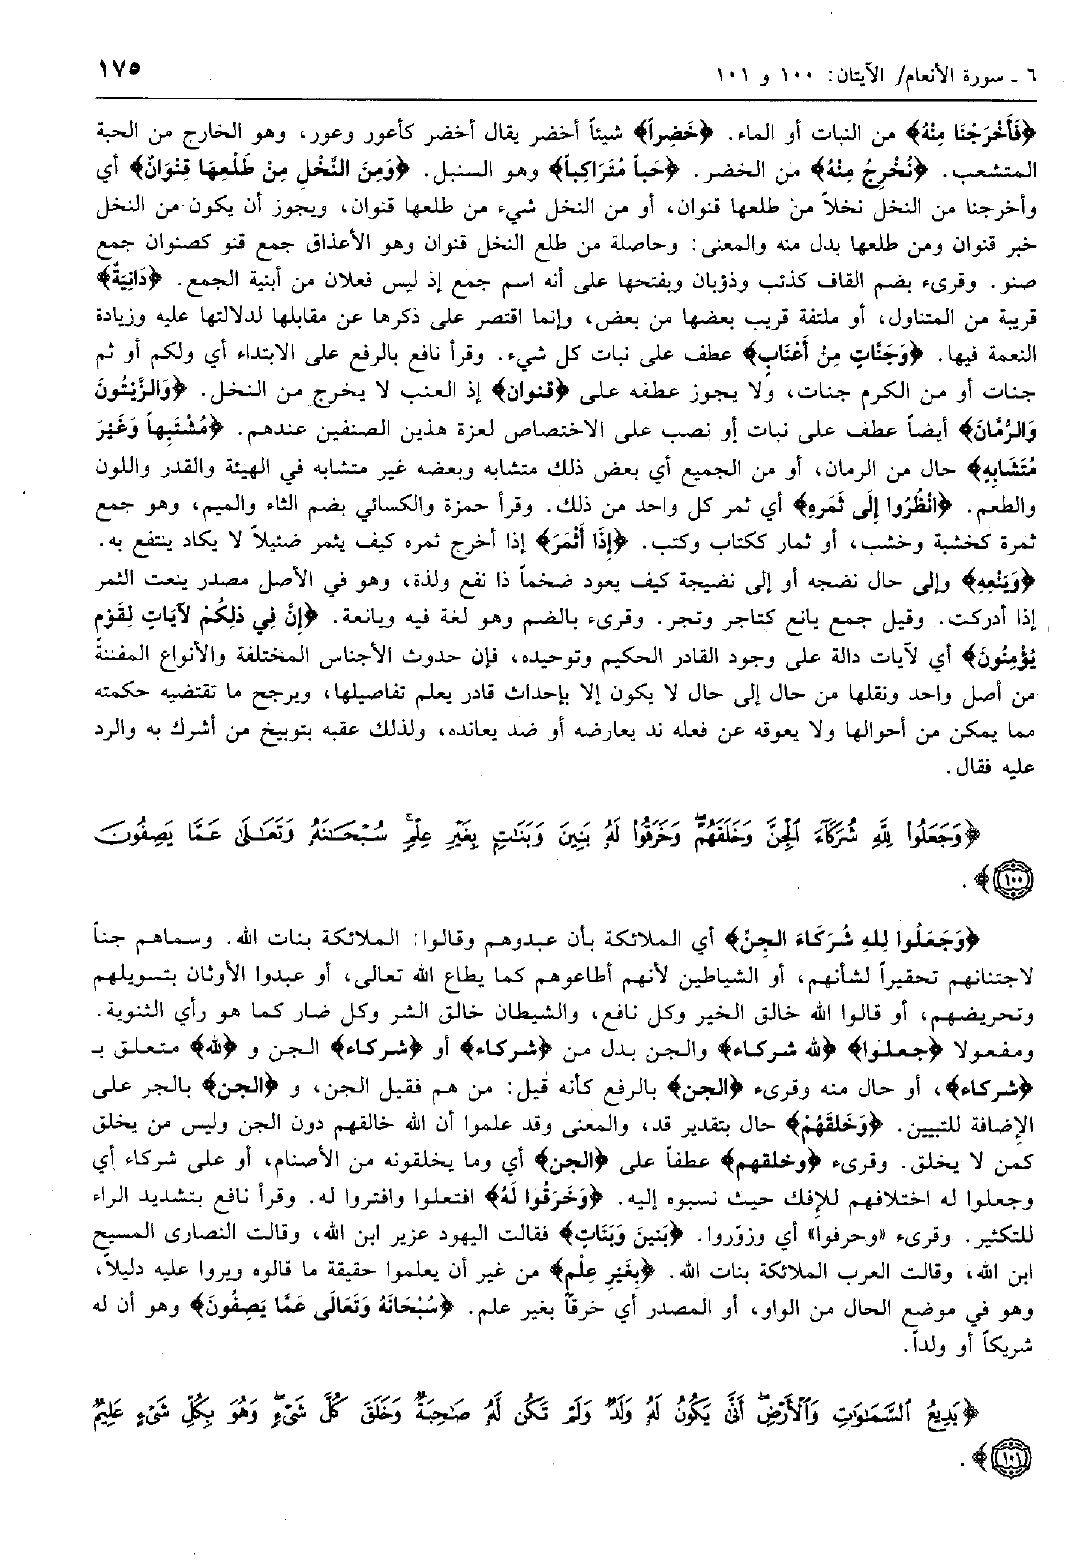 ٦ ـ سورة الأنعام/ الآيتان: ١٠٠ و ١٠١
١٧٥
﴿فَأَخْرَجْنَا مِنْهُ﴾ من النبات أو الماء. ﴿خَضِراً﴾ شيئاً أخضر يقال أخضر كأعور وعور، وهو الخارج من الحبة
المتشعب. ﴿نُخْرِجُ مِنْهُ﴾ من الخضر. ﴿حَباً مُتَرَاكِباً﴾ وهو السنبل. ﴿وَمِنَ النَّخْلِ مِنْ طَلْعِهَا قِنْوَانٌ﴾ أي
وأخرجنا من النخل نخلاً من طلعها قنوان، أو من النخل شيء من طلعها قنوان، ويجوز أن يكون من النخل
خبر قنوان ومن طلعها بدل منه والمعنى: وحاصلة من طلع النخل قنوان وهو الأعذاق جمع قنو كصنوان جمع
صنو. وقرىء بضم القاف كذئب وذؤبان وبفتحها على أنه اسم جمع إذ ليس فعلان من أبنية الجمع. ﴿دَانِيَةٌ﴾
قريبة من المتناول، أو ملتفة قريب بعضها من بعض، وإنما اقتصر على ذكرها عن مقابلها لدلالتها عليه وزيادة
النعمة فيها. ﴿وَجَنَّاتٍ مِنْ أَعْنَابٍ﴾ عطف على نبات كل شيء. وقرأ نافع بالرفع على الابتداء أي ولكم أو ثم
جنات أو من الكرم جنات، ولا يجوز عطفه على ﴿قنوان﴾ إذ العنب لا يخرج من النخل. ﴿وَالزَّيْتُونَ
وَالرُّمَّانَ﴾ أيضاً عطف على نبات أو نصب على الاختصاص لعزة هذين الصنفين عندهم. ﴿مُشْتَبِهاً وَغَيْرَ
مُتَشَابِهٍ﴾ حال من الرمان، أو من الجميع أي بعض ذلك متشابه وبعضه غير متشابه في الهيئة والقدر واللون
والطعم. ﴿انْظُرُوا إِلَى ثَمَرِهِ﴾ أي ثمر كل واحد من ذلك. وقرأ حمزة والكسائي بضم الثاء والميم، وهو جمع
ثمرة كخشبة وخشب، أو ثمار ككتاب وكتب. ﴿إِذَا أَثْمَرَ﴾ إذا أخرج ثمره كيف يثمر ضئيلاً لا يكاد ينتفع به.
﴿وَيَنْعِهِ﴾ وإلى حال نضجه أو إلى نضيجة كيف يعود ضخماً ذا نفع ولذة، وهو في الأصل مصدر ينعت الثمر
إذا أدركت. وقيل جمع يانع كتاجر وتجر. وقرىء بالضم وهو لغة فيه ويانعة. ﴿إِنَّ فِي ذلِكُمْ لآيَاتٍ لِقَوْمٍ
يُؤْمِنُونَ﴾ أي لآيات دالة على وجود القادر الحكيم وتوحيده، فإن حدوث الأجناس المختلفة والأنواع المفننة
من أصل واحد ونقلها من حال إلى حال لا يكون إلا بإحداث قادر يعلم تفاصيلها، ويرجح ما تقتضيه حكمته
مما يمكن من أحوالها ولا يعوقه عن فعله ند يعارضه أو ضد يعانده، ولذلك عقبه بتوبيخ من أشرك به والرد
عليه فقال.
﴿وَجَعَلُوا لِلَّهِ شُرَكَآءَ ٱلْجِنَّ وَخَلَقَهُمْ وَخَرَقُوا لَهُ بَنِينَ وَبَنَاتٍ بِغَيْرِ عِلْمٍ سُبْحَانَهُ وَتَعَالَى عَمَّا يَصِفُونَ
(١٠٠)﴾.
﴿وَجَعَلُوا لِلهِ شُرَكَاءَ الجِنَّ﴾ أي الملائكة بأن عبدوهم وقالوا: الملائكة بنات الله. وسماهم جناً
لاجتنانهم تحقيراً لشأنهم، أو الشياطين لأنهم أطاعوهم كما يطاع الله تعالى، أو عبدوا الأوثان بتسويلهم
وتحريضهم، أو قالوا الله خالق الخير وكل نافع، والشيطان خالق الشر وكل ضار كما هو رأي الثنوية.
ومفعولا ﴿جعلوا﴾ ﴿لله شركاء﴾ والجن بدل من ﴿شركاء﴾ أو ﴿شركاء﴾ الجن و ﴿لله﴾ متعلق بـ
﴿شركاء﴾، أو حال منه وقرىء ﴿الجن﴾ بالرفع كأنه قيل: من هم فقيل الجن، و ﴿الجن﴾ بالجر على
الإضافة للتبيين. ﴿وَخَلَقَهُمْ﴾ حال بتقدير قد، والمعنى وقد علموا أن الله خالقهم دون الجن وليس من يخلق
كمن لا يخلق. وقرىء ﴿وخلقهم﴾ عطفاً على ﴿الجن﴾ أي وما يخلقونه من الأصنام، أو على شركاء أي
وجعلوا له اختلافهم للإفك حيث نسبوه إليه. ﴿وَخَرَقُوا لَهُ﴾ افتعلوا وافتروا له. وقرأ نافع بتشديد الراء
للتكثير. وقرىء «وحرفوا» أي وزوّروا. ﴿بَنِينَ وَبَنَاتٍ﴾ فقالت اليهود عزير ابن الله، وقالت النصارى المسيح
ابن الله، وقالت العرب الملائكة بنات الله. ﴿بِغَيْرِ عِلْمٍ﴾ من غير أن يعلموا حقيقة ما قالوه ويروا عليه دليلاً،
وهو في موضع الحال من الواو، أو المصدر أي خرقاً بغير علم. ﴿سُبْحَانَهُ وَتَعَالَى عَمَّا يَصِفُونَ﴾ وهو أن له
شريكاً أو ولداً.
﴿بَدِيعُ ٱلسَّمَاوَاتِ وَٱلْأَرْضِ أَنَّى يَكُونُ لَهُ وَلَدٌ وَلَمْ تَكُن لَّهُ صَاحِبَةٌ وَخَلَقَ كُلَّ شَيْءٍ وَهُوَ بِكُلِّ شَيْءٍ عَلِيمٌ
(١٠١)﴾.